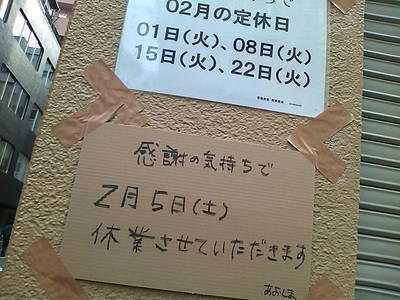 02月の定休日
01日(火)、08日(火)
15日(火)、22日(火)
感謝の気持ちで
2月5日(土)
休業させていただきます
あおしま